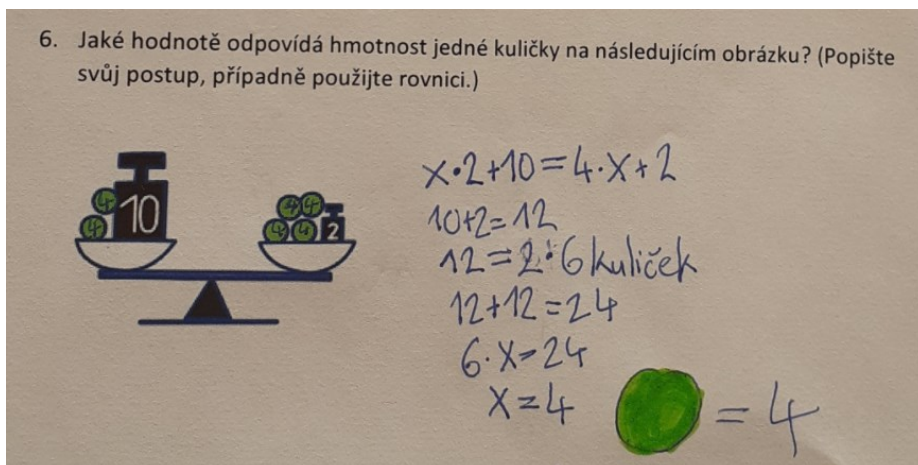 6. Jaké hodnotě odpovídá hmotnost jedné kuličky na následujícím obrázku? (Popište
svůj postup, případně použijte rovnici.)
4 4 10
4 4 4 4 2
x·2+10=4·x+2
10+2=12
12=2·6 kuliček
12+12=24
6·x=24
x=4
= 4